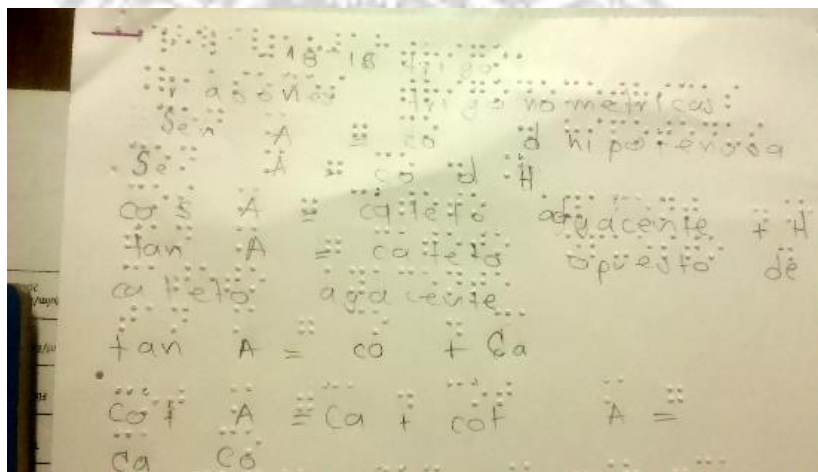 18 18 trigo
razones trigonometricas:
Sen A = co d hipotenosa
Se A = co d H
cos A = cateto adyacente + H
tan A = cateto opuesto de
cateto agacente
tan A = co + Ca
Cot A = Ca + cot A =
Ca Co